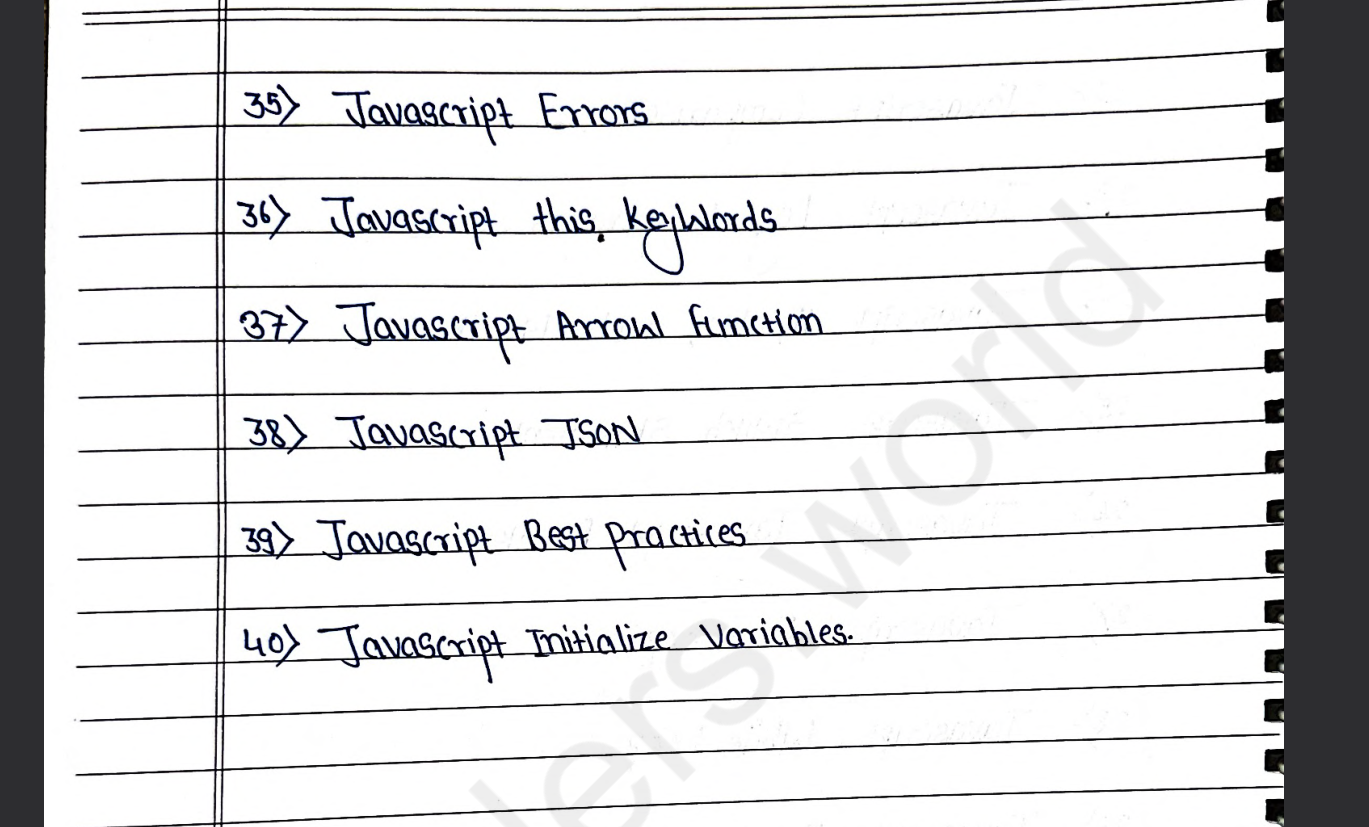 35) Javascript Errors
36) Javascript this. keyWords
37) Javascript Arrow function
38) Javascript JSON
39) Javascript Best practices
40) Javascript Initialize Variables.
ders world